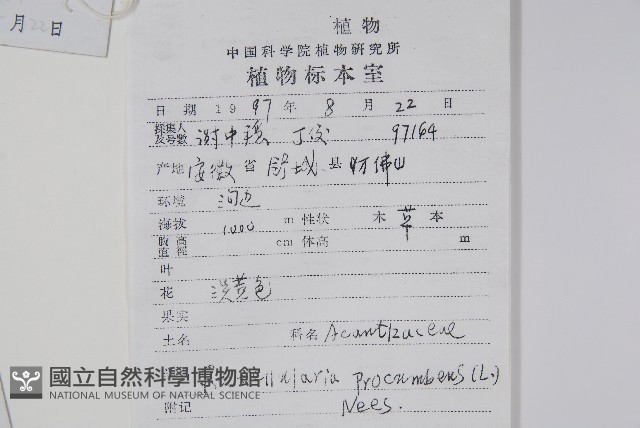 月22日
植物
中国科学院植物研究所
植物标本室
日期 1997年8月22日
采集人及号数 谢中稳、丁俊 97164
产地 安徽省舒城县万佛山
环境 河边
海拔 1000 m 性状 木 草 本
胸高直径 cm 体高 m
叶
花 淡黄色
果实
土名 科名 Acanthaceae
Procumbens (L.)
附记 Nees.
國立自然科學博物館
NATIONAL MUSEUM OF NATURAL SCIENCE